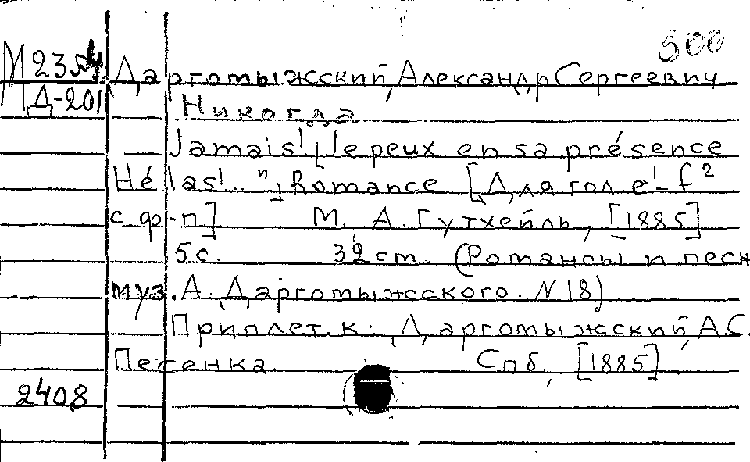 500
М 23 Даргомыжский, Александр Сергеевич
Д-201 Никогда
Jamais! [Je peux en sa présence
Hélas!.. "] Romance [Для гол e'-f²
с ф-п] М. А. Гутхейль, [1885]
5 с. 32 cm. (Романсы и песн
муз. А. Даргомыжского. N 18)
Приплет. к: Даргомыжский, А.С.
Песенка Спб, [1885]
2408